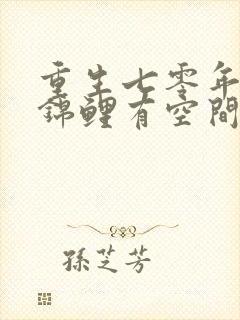 重生七零年
錦鯉有空間
孫芝芳